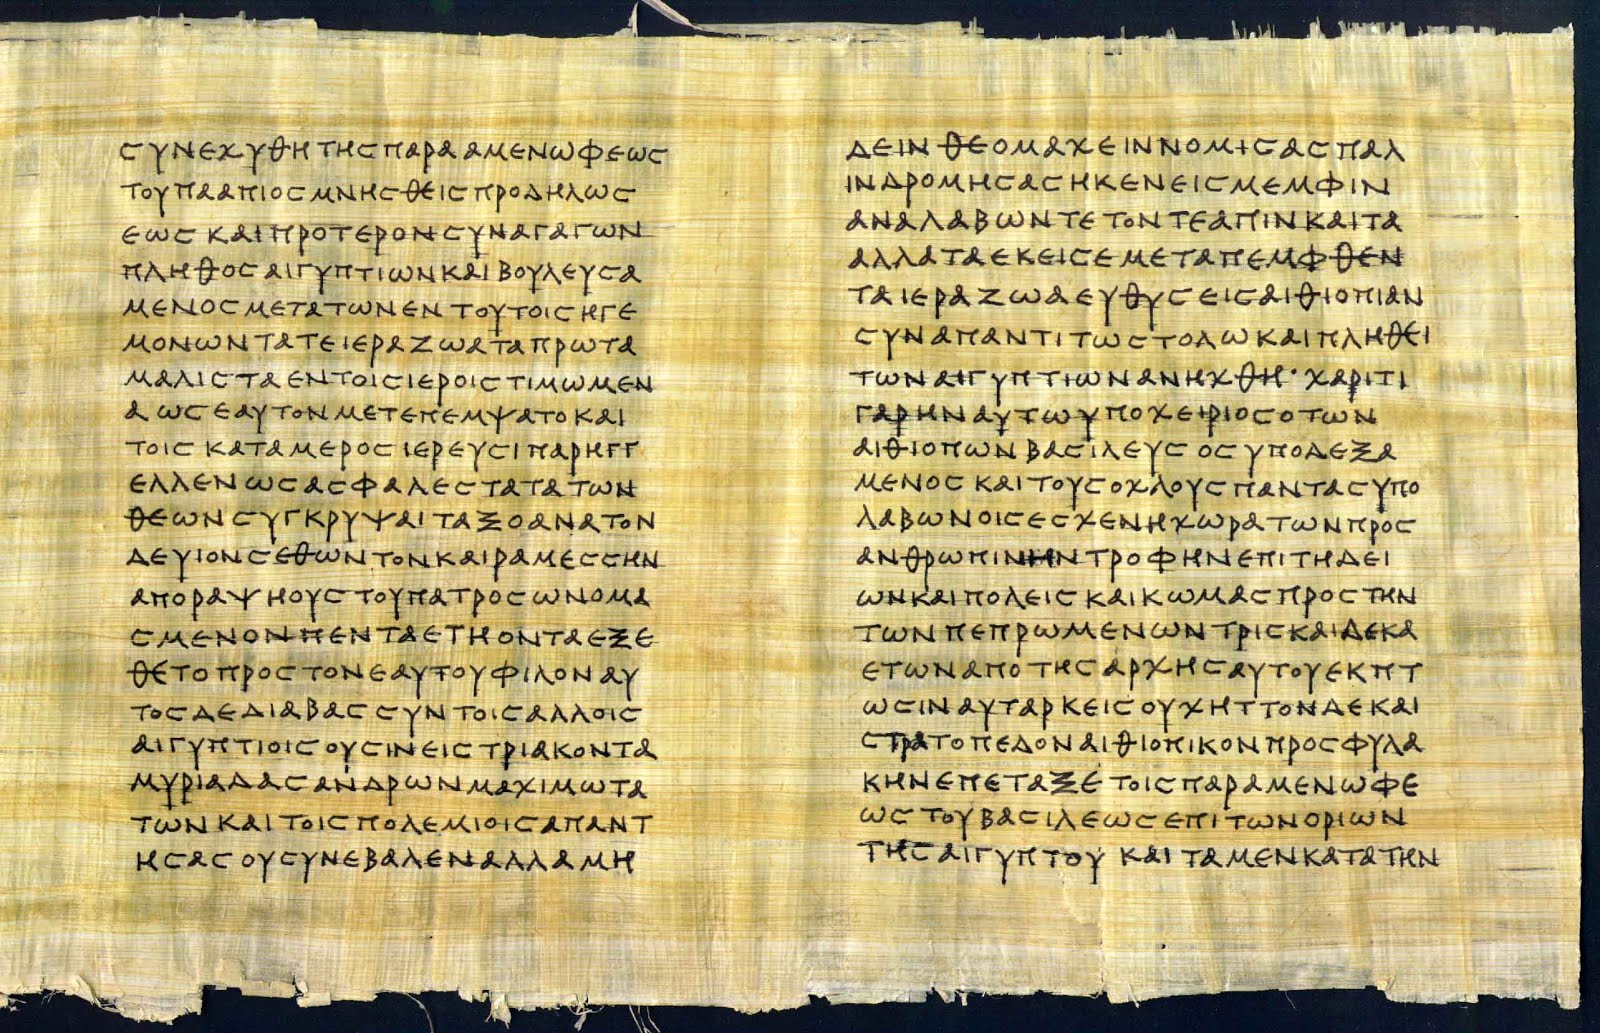 ϹΥΝΕΧΥΘΗ ΤΗϹ ΠΑΡΑ ΑΜΕΝΩΦΕΩϹ
ΤΟΥ ΠΑΑΠΙΟϹ ΜΝΗϹΘΕΙϹ ΠΡΟΔΗΛΩϹ
ΕΩϹ ΚΑΙ ΠΡΟΤΕΡΟΝ ϹΥΝΑΓΑΓΩΝ
ΠΛΗΘΟϹ ΑΙΓΥΠΤΙΩΝ ΚΑΙ ΒΟΥΛΕΥϹΑ
ΜΕΝΟϹ ΜΕΤΑ ΤΩΝ ΕΝ ΤΟΥΤΟΙϹ ΗΓΕ
ΜΟΝΩΝ ΤΑ ΤΕ ΙΕΡΑ ΖΩΑ ΤΑ ΠΡΩΤΑ
ΜΑΛΙϹΤΑ ΕΝ ΤΟΙϹ ΙΕΡΟΙϹ ΤΙΜΩΜΕΝ
Α ΩϹ ΕΑΥΤΟΝ ΜΕΤΕΠΕΜΨΑΤΟ ΚΑΙ
ΤΟΙϹ ΚΑΤΑ ΜΕΡΟϹ ΙΕΡΕΥϹΙ ΠΑΡΗΓΓ
ΕΛΛΕΝ ΩϹ ΑϹΦΑΛΕϹΤΑΤΑ ΤΩΝ
ΘΕΩΝ ϹΥΓΚΡΥΨΑΙ ΤΑ ΞΟΑΝΑ ΤΟΝ
ΔΕ ΥΙΟΝ ϹΕΘΩΝ ΤΟΝ ΚΑΙ ΡΑΜΕϹϹΗΝ
ΑΠΟ ΡΑΨΗΟΥϹ ΤΟΥ ΠΑΤΡΟϹ ΩΝΟΜΑ
ϹΜΕΝΟΝ ΠΕΝΤΑΕΤΗ ΟΝΤΑ ΕΞΕ
ΘΕΤΟ ΠΡΟϹ ΤΟΝ ΕΑΥΤΟΥ ΦΙΛΟΝ ΑΥ
ΤΟϹ ΔΕ ΔΙΑΒΑϹ ϹΥΝ ΤΟΙϹ ΑΛΛΟΙϹ
ΑΙΓΥΠΤΙΟΙϹ ΟΥϹΙΝ ΕΙϹ ΤΡΙΑΚΟΝΤΑ
ΜΥΡΙΑΔΑϹ ΑΝΔΡΩΝ ΜΑΧΙΜΩΤΑ
ΤΩΝ ΚΑΙ ΤΟΙϹ ΠΟΛΕΜΙΟΙϹ ΑΠΑΝΤ
ΗϹΑϹ ΟΥ ϹΥΝΕΒΑΛΕΝ ΑΛΛΑ ΜΗ
ΔΕΙΝ ΘΕΟΜΑΧΕΙΝ ΝΟΜΙϹΑϹ ΠΑΛ
ΙΝΔΡΟΜΗϹΑϹ ΗΚΕΝ ΕΙϹ ΜΕΜΦΙΝ
ΑΝΑΛΑΒΩΝ ΤΕ ΤΟΝ ΤΕ ΑΠΙΝ ΚΑΙ ΤΑ
ΑΛΛΑ ΤΑ ΕΚΕΙϹΕ ΜΕΤΑΠΕΜΦΘΕΝ
ΤΑ ΙΕΡΑ ΖΩΑ ΕΥΘΥϹ ΕΙϹ ΑΙΘΙΟΠΙΑΝ
ϹΥΝ ΑΠΑΝΤΙ ΤΩ ϹΤΟΛΩ ΚΑΙ ΠΛΗΘΕΙ
ΤΩΝ ΑΙΓΥΠΤΙΩΝ ΑΝΗΧΘΗ· ΧΑΡΙΤΙ
ΓΑΡ ΗΝ ΑΥΤΩ ΥΠΟΧΕΙΡΙΟϹ Ο ΤΩΝ
ΑΙΘΙΟΠΩΝ ΒΑϹΙΛΕΥϹ ΟϹ ΥΠΟΔΕΞΑ
ΜΕΝΟϹ ΚΑΙ ΤΟΥϹ ΟΧΛΟΥϹ ΠΑΝΤΑϹ ΥΠΟ
ΛΑΒΩΝ ΟΙϹ ΕϹΧΕΝ Η ΧΩΡΑ ΤΩΝ ΠΡΟϹ
ΑΝΘΡΩΠΙΝΗΝ ΤΡΟΦΗΝ ΕΠΙΤΗΔΕΙ
ΩΝ ΚΑΙ ΠΟΛΕΙϹ ΚΑΙ ΚΩΜΑϹ ΠΡΟϹ ΤΗΝ
ΤΩΝ ΠΕΠΡΩΜΕΝΩΝ ΤΡΙϹΚΑΙΔΕΚΑ
ΕΤΩΝ ΑΠΟ ΤΗϹ ΑΡΧΗϹ ΑΥΤΟΥ ΕΚΠΤ
ΩϹΙΝ ΑΥΤΑΡΚΕΙϹ ΟΥΧ ΗΤΤΟΝ ΔΕ ΚΑΙ
ϹΤΡΑΤΟΠΕΔΟΝ ΑΙΘΙΟΠΙΚΟΝ ΠΡΟϹ ΦΥΛΑ
ΚΗΝ ΕΠΕΤΑΞΕ ΤΟΙϹ ΠΑΡ ΑΜΕΝΩΦΕ
ΩϹ ΤΟΥ ΒΑϹΙΛΕΩϹ ΕΠΙ ΤΩΝ ΟΡΙΩΝ
ΤΗϹ ΑΙΓΥΠΤΟΥ ΚΑΙ ΤΑ ΜΕΝ ΚΑΤΑ ΤΗΝ